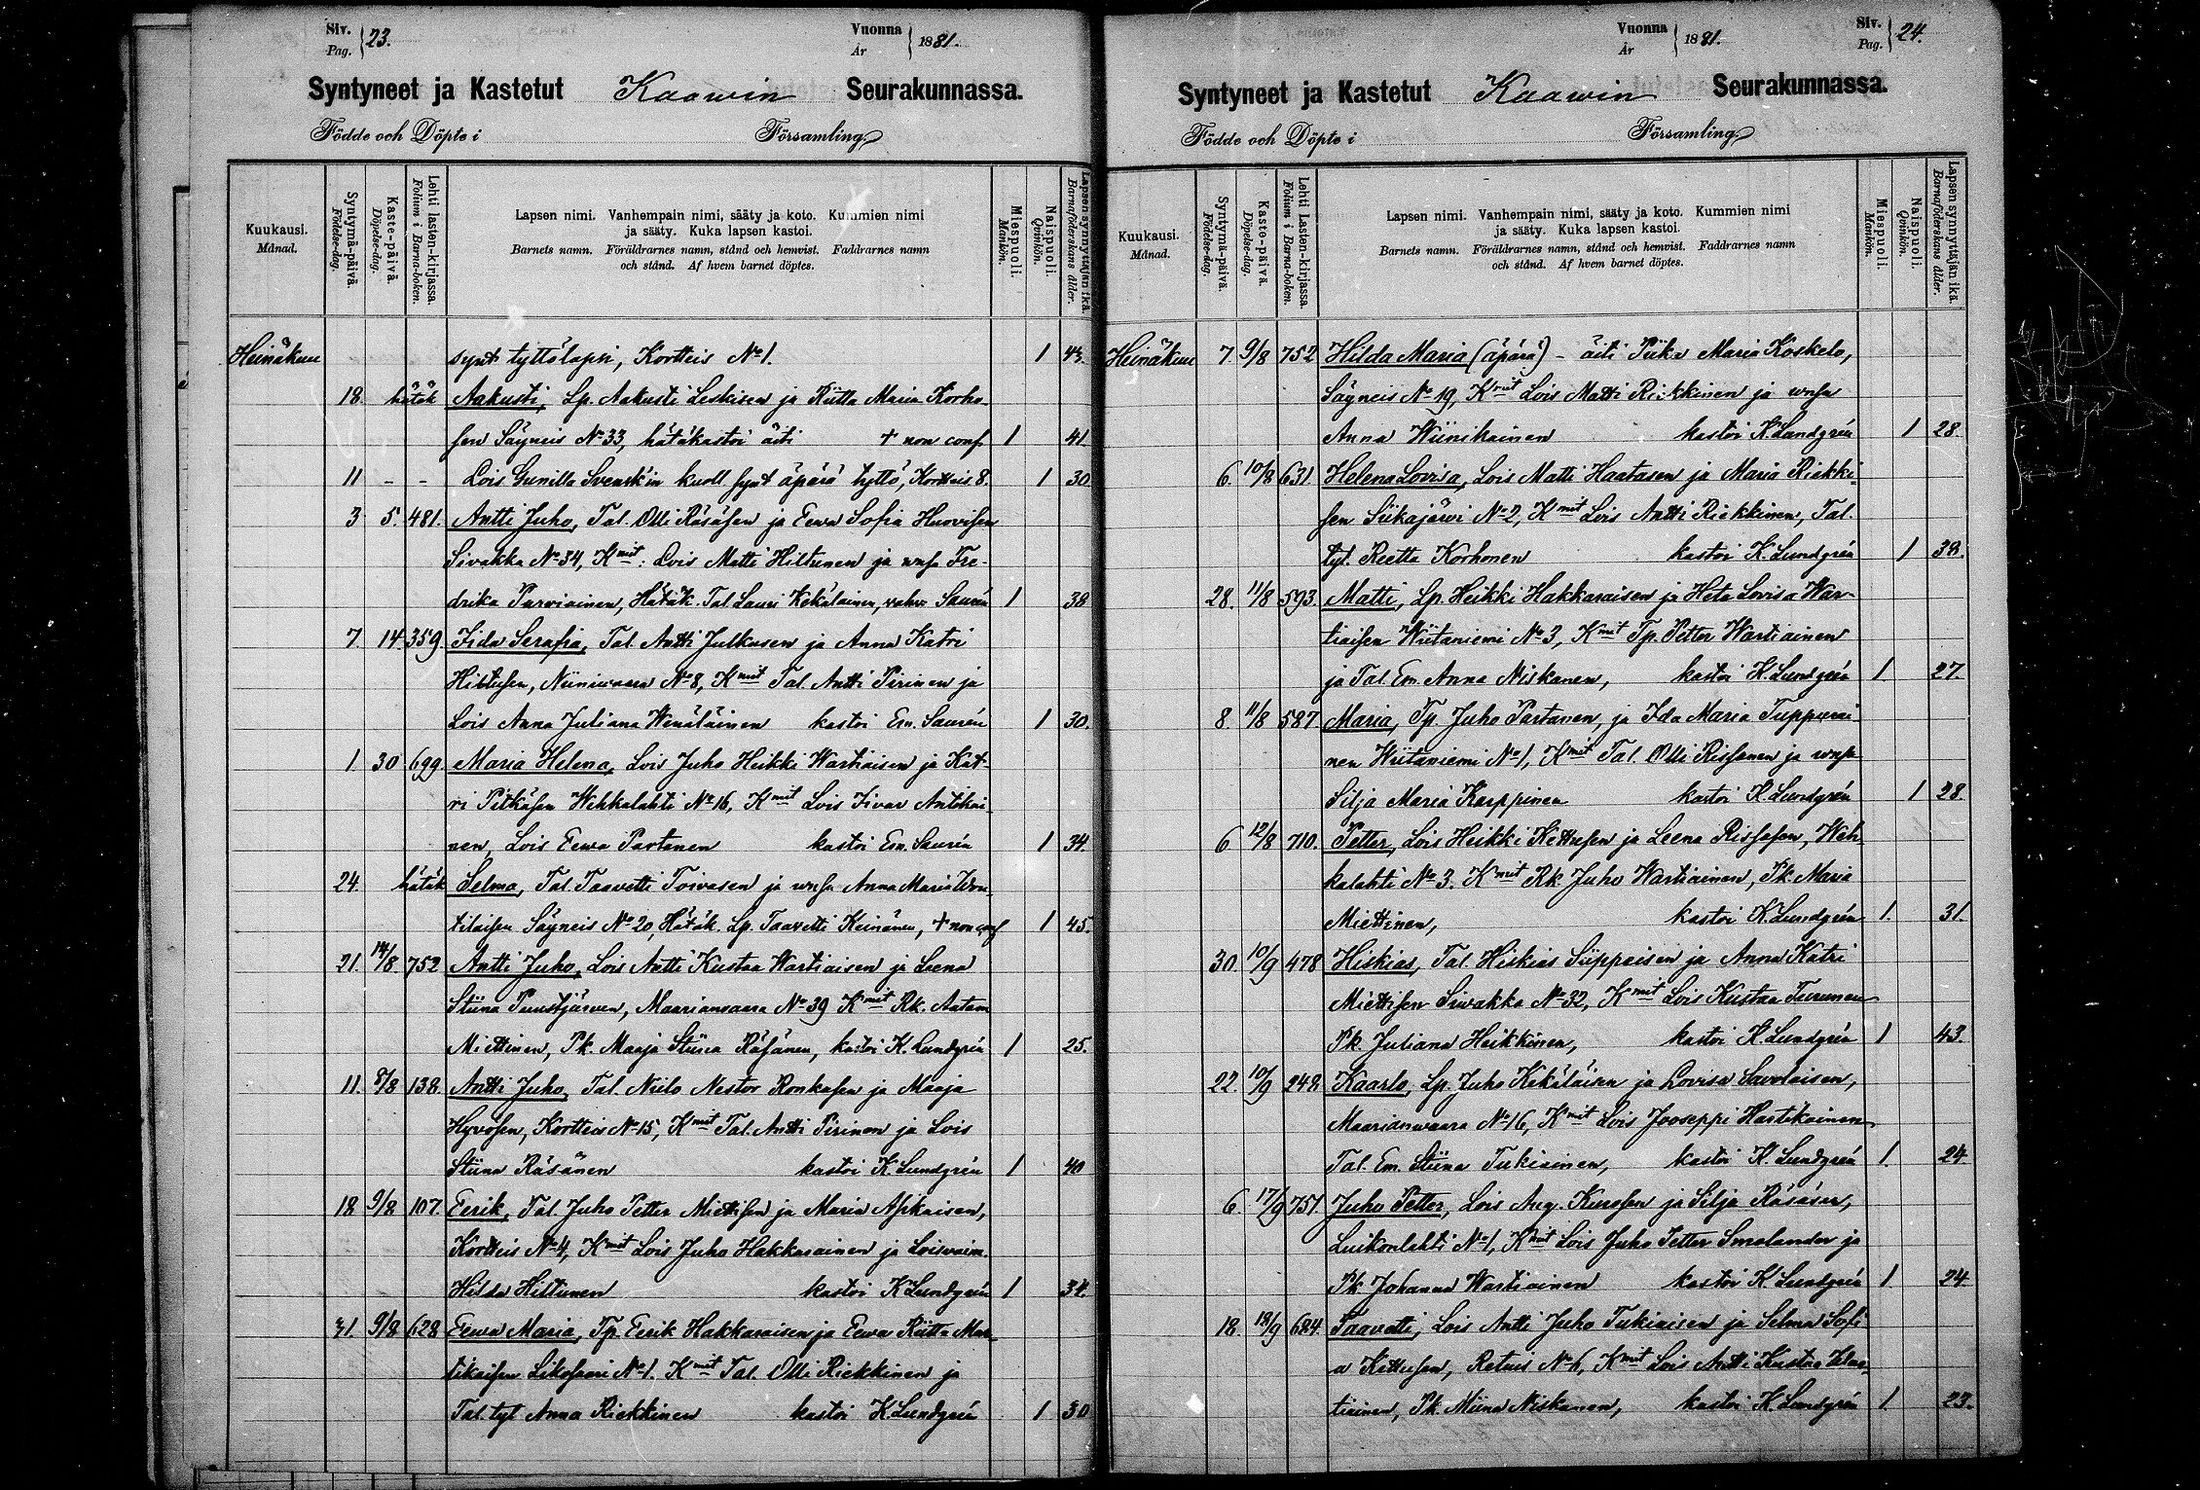 Siv. Pag. 23.
Vuonna År 1881.
Syntyneet ja Kastetut Kaawin Seurakunnassa.
Födde och Döpte i Församling
Kuukausi. Månad.
Syntymä-päivä. Födelse-dag.
Kaste-päivä. Döpelse-dag.
Lehti lasten-kirjassa. Folium i Barna-boken.
Lapsen nimi. Vanhempain nimi, sääty ja koto. Kummien nimi
ja sääty. Kuka lapsen kastoi.
Barnets namn. Föräldrarnes namn, stånd och hemvist. Faddrarnes namn
och stånd. Af hvem barnet döptes.
Miespuoli. Mankön.
Naispuoli. Qvinkön.
Lapsen synnyttäjän ikä. Barnaföderskans ålder.
Heinäkuu synt tyttölapsi, Kortteis No 1. 1 43.
18. hätäk Aakusti, Lp. Aakusti Leskisen ja Riitta Maria Korho-
sen Säyneis No 33, hätäkastoi äiti + non conf 1 41
11 - - Lois Gunilla Svensk'in kuoll. synt äpärä tyttö, Kortteis 8. 1 30
3 5. 481. Antti Juho, Tal. Olli Räsäsen ja Eewa Sofia Huovisen
Sivakka No 34, Kmit: Lois Matti Hiltunen ja wmsa Fre-
drika Parviainen, Hätäk. Tal. Lauri Kekäläinen, vahv. Saurén 1 38
7. 14. 359. Iida Serafia, Tal. Antti Julkusen ja Anna Katri
Hiltusen, Niiniwaara No 8, Kmit Tal. Antti Pirinen ja
Lois Anna Juliana Wenäläinen kastoi Em. Saurén 1 30.
1. 30 699. Maria Helena, Lois Juho Heikki Wartiaisen ja Kat-
ri Pitkäsen Wehkalahti No 16, Kmit Lois Iivar Antikai-
nen, Lois Eewa Partanen kastoi Em. Saurén 1 34.
24. hätäk Selma, Tal. Taavetti Toivasen ja wmsa Anna Maria Won-
tilaisen Säyneis No 20, Hätäk. Lp. Taavetti Keinänen, + non conf 1 45.
21. 14/8 752 Antti Juho, Lois Antti Kustaa Wartiaisen ja Leena
Stiina Puustjärven, Maarianvaara No 39 Kmit Rk. Aatam
Miettinen, Pk. Maaja Stiina Räsänen, kastoi K. Lundgrén 1 25.
11. 8/8 138. Antti Juho, Tal. Niilo Nestor Ronkasen ja Maaja
Hyvösen, Kortteis No 15, Kmit Tal. Antti Pirinen ja Lois
Stiina Räsänen kastoi K. Lundgrén 1 40
18 9/8 107. Eerik, Tal. Juho Petter Miettisen ja Maria Asikaisen,
Kortteis No 4, Kmit Lois Juho Hakkarainen ja Loisvaim.
Hilda Hiltunen kastoi K Lundgrén 1 34.
31. 9/8 628 Eewa Maria, Tp. Eerik Hakkaraisen ja Eewa Riitta Mar-
tikaisen Likosaari No 1. Kmit Tal. Olli Riekkinen ja
Tal. tyt Anna Riekkinen kastoi K Lundgrén 1 30
Vuonna År 1881.
Siv. Pag. 24.
Syntyneet ja Kastetut Kaawin Seurakunnassa.
Födde och Döpte i Församling
Kuukausi. Månad.
Syntymä-päivä. Födelse-dag.
Kaste-päivä. Döpelse-dag.
Lehti Lasten-kirjassa. Folium i Barna-boken.
Lapsen nimi. Vanhempain nimi, sääty ja koto. Kummien nimi
ja sääty. Kuka lapsen kastoi.
Barnets namn. Föräldrarnes namn, stånd och hemvist. Faddrarnes namn
och stånd. Af hvem barnet döptes.
Miespuoli. Mankön.
Naispuoli. Qvinkön.
Lapsen synnyttäjän ikä. Barnaföderskans ålder.
Heinäkuu 7. 9/8 752 Hilda Maria (äpärä) - äiti Piika Maria Koskelo,
Säyneis No 19, Kmit Lois Matti Riekkinen ja wmsa
Anna Wiinikainen kastoi K. Lundgrén 1 28.
6. 10/8 631. Helena Lovisa, Lois Matti Haatasen ja Maria Riekki-
sen Siikajärvi No 2, Kmit Lois Antti Riekkinen, Tal.
tyt. Reetta Korhonen kastoi K. Lundgrén 1 38.
28. 11/8 593. Matti, Lp. Heikki Hakkaraisen ja Heta Lovisa War-
tiaisen Wiitaniemi No 3, Kmit Tp. Petter Wartiainen
ja Tal. Em. Anna Niskanen, kastoi K. Lundgrén 1 27.
8. 11/8 587. Maria, Tp. Juho Partanen, ja Ida Maria Tuppurai
nen Wiitaniemi No 1, Kmit Tal. Olli Rissanen ja wmsa
Silja Maria Karppinen kastoi K Lundgrén 1 28.
6 12/8 710. Petter, Lois Heikki Kettusen ja Leena Rissasen, Weh
kalahti No 3. Kmit Rk. Juho Wartiainen, Pk. Maria
Miettinen, kastoi K. Lundgrén 1. 31.
30. 10/9 478 Hiskias, Tal. Hiskias Siippaisen ja Anna Katri
Miettisen Siwakka No 32, Kmit Lois Kustaa Turunen
Pk. Juliana Heikkinen, kastoi K. Lundgrén 1 43.
22. 10/9 248. Kaarlo, Lp. Juho Kekäläisen ja Lovisa Savolaisen,
Maarianwaara No 16, Kmit Lois Jooseppi Hartikainen
Tal. Em. Stiina Tukiainen, kastoi K. Lundgrén 1. 24.
6. 17/9 751. Juho Petter, Lois Aug. Kurosen ja Silja Räsäsen,
Luikonlahti No 1, Kmit Lois Juho Petter Smolander ja
Pk. Johanna Wartiainen kastoi K Lundgrén 1. 24.
18 18/9 684. Taavetti, Lois Antti Juho Tukiaisen ja Selma Sofi
a Kettusen, Retuis No 6, Kmit Lois Antti Kustaa
tiainen, Pk. Miina Niskanen, kastoi K. Lundgrén 1. 23.